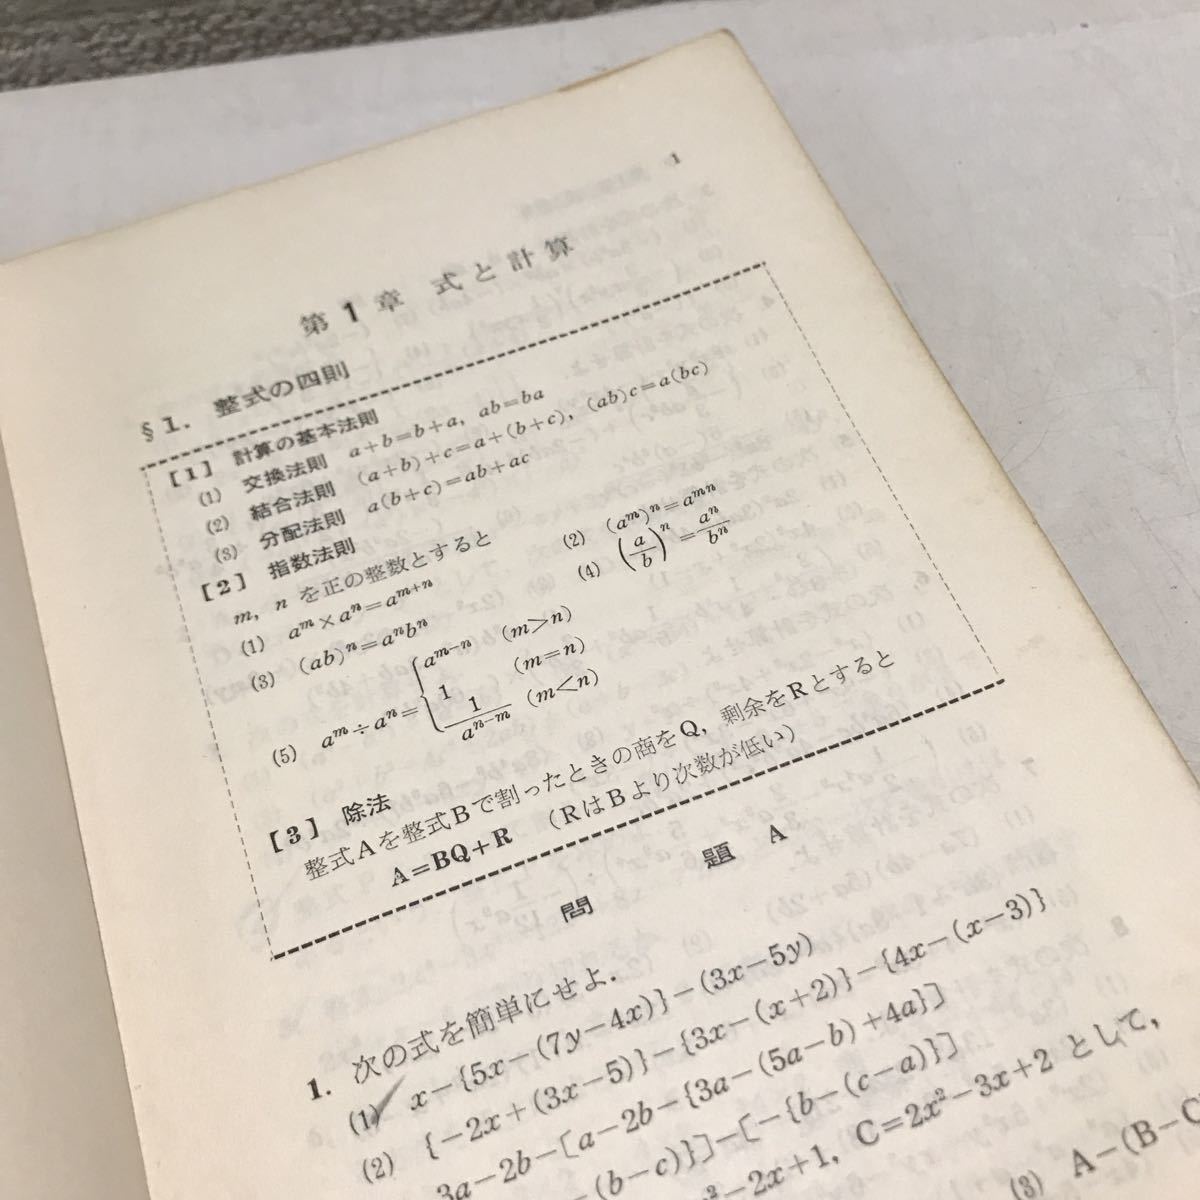 1
第1章 式と計算
§1. 整式の四則
[1] 計算の基本法則
(1) 交換法則 a+b=b+a, ab=ba
(2) 結合法則 (a+b)+c=a+(b+c), (ab)c=a(bc)
(3) 分配法則 a(b+c)=ab+ac
[2] 指数法則
m, n を正の整数とすると
(1) a^m×a^n=a^{m+n} (2) (a^m)^n=a^{mn}
(3) (ab)^n=a^n b^n (4) (a/b)^n=a^n/b^n
(5) a^m÷a^n={a^{m-n} (m>n)
1 (m=n)
1/a^{n-m} (m<n)
[3] 除法
整式Aを整式Bで割ったときの商をQ, 剰余をRとすると
A=BQ+R (RはBより次数が低い)
問題 A
1. 次の式を簡単にせよ.
(1) x-{5x-(7y-4x)}-(3x-5y)
(2) {-2x+(3x-5)}-{3x-(x+2)}-{4x-(x-3)}
3a-2b-[a-2b-{3a-(5a-b)+4a}]
(b-c)}]-[-{b-(c-a)}]
-2x+1, C=2x²-3x+2 として,
(3) A-(B-C